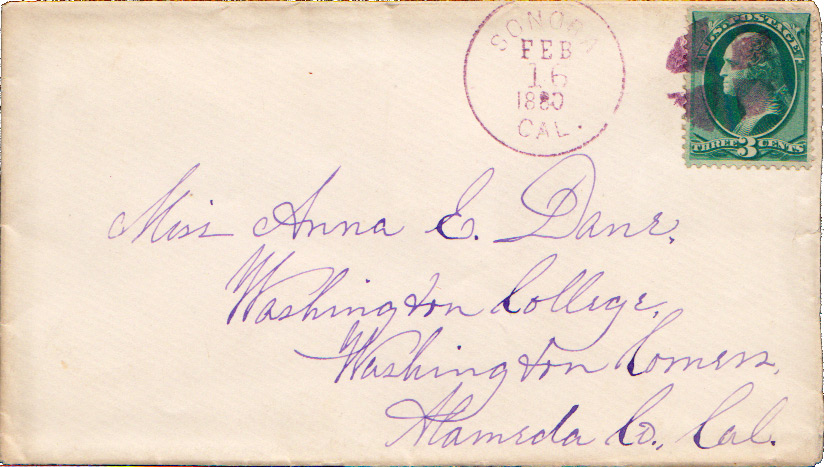 SONORA
FEB
16
1880
CAL.
U.S. POSTAGE
THREE 3 CENTS
Miss Anna E. Dane,
Washington College,
Washington Corners,
Alameda Co., Cal.